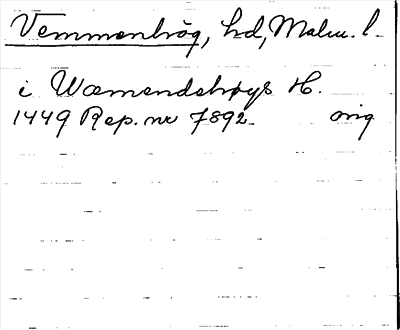 Vemmenhög, hd, Malm. l.
i Wæmendehøgs H.
1449 Rep. nr 7892. orig